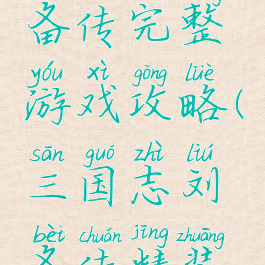 备传完整
yóu xì gōng lüè
游戏攻略(
sān guó zhì liú
三国志刘
bèi chuán jīng zhuāng
备传精装